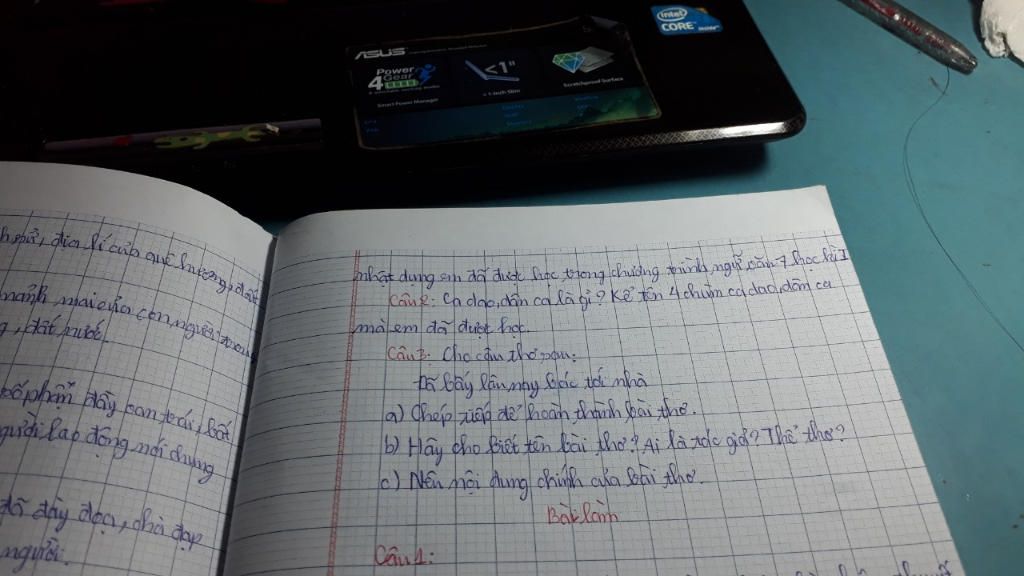 intel
CORE inside
ASUS
Power
4 Gear
Smart Power Manager
<1"
< 1 inch Slim
Scratchproof Surface
, địa lí của quê hương, đất
mảnh mai của con người trong
, đất nước.
số phận đầy oan trái, bất
người lao động nói chung
đã đày đoạ, chà đạp
người.
nhật dụng em đã được học trong chương trình ngữ văn 7 học kì I
Câu 2: Ca dao, dân ca là gì? Kể tên 4 chùm ca dao, dân ca
mà em đã được học.
Câu 3: Cho câu thơ sau:
Đã bấy lâu nay bác tới nhà
a) Chép tiếp để hoàn thành bài thơ.
b) Hãy cho biết tên bài thơ? Ai là tác giả? Thể thơ?
c) Nêu nội dung chính của bài thơ.
Bài làm
Câu 1: